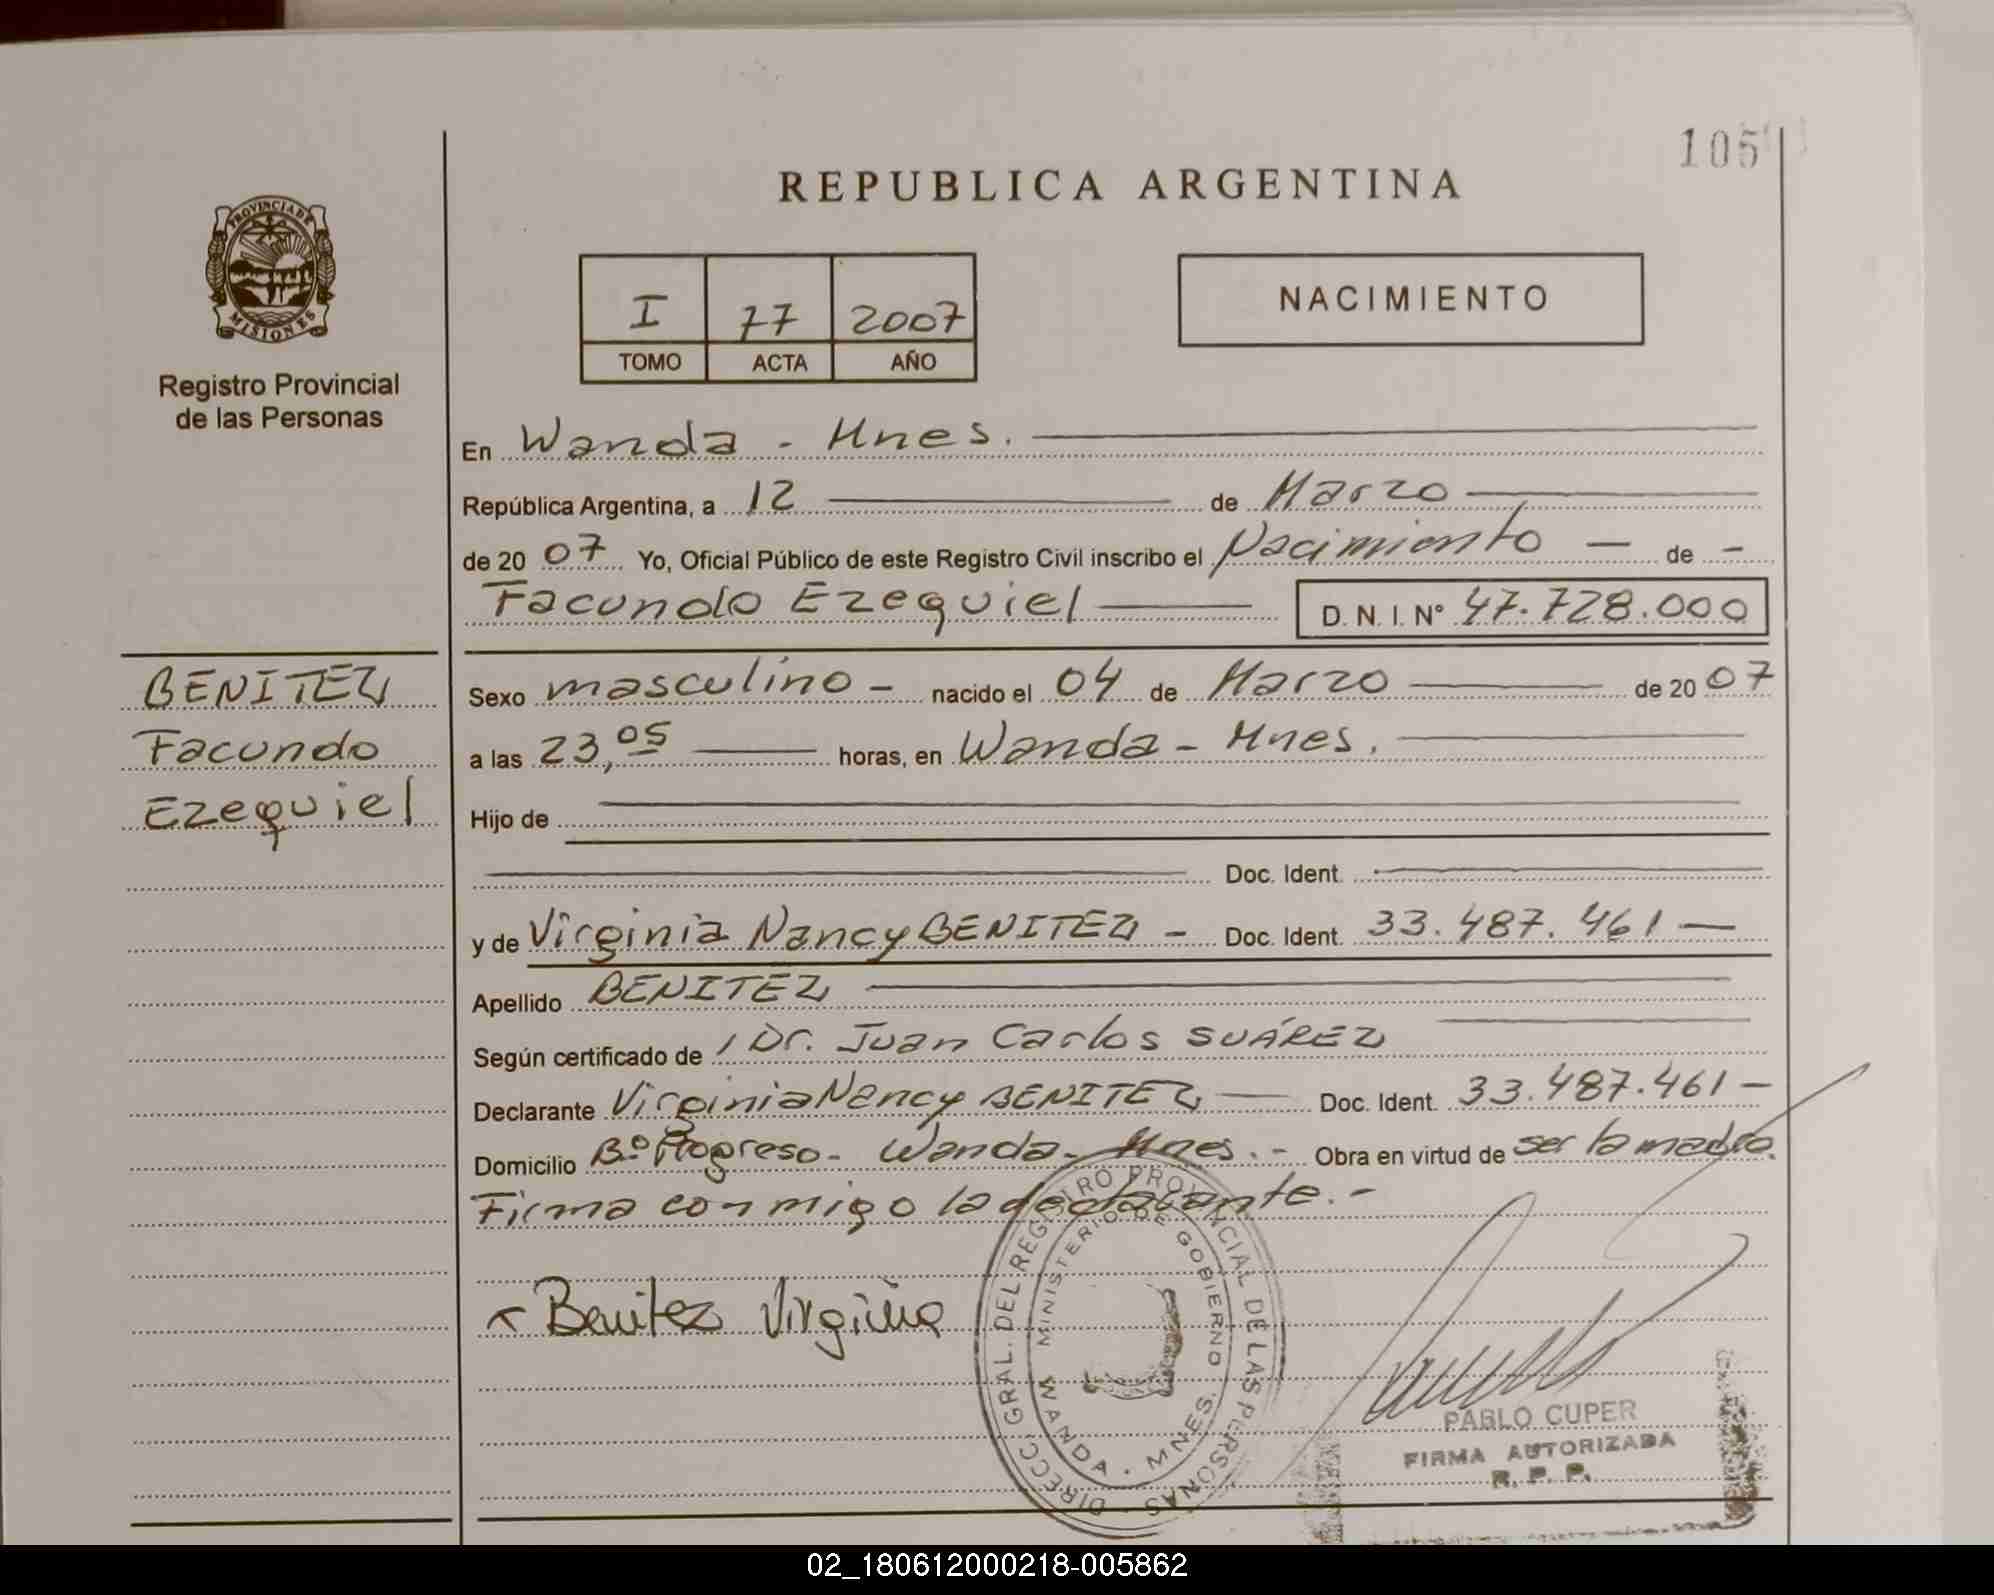 105
REPUBLICA ARGENTINA
PROVINCIA DE
MISIONES
Registro Provincial
de las Personas
I 77 2007
TOMO ACTA AÑO
NACIMIENTO
En Wanda - Mnes.
República Argentina, a 12 de Marzo
de 2007 Yo, Oficial Público de este Registro Civil inscribo el Nacimiento - de -
Facundo Ezequiel D. N. I. N° 47.728.000
BENITEZ
Facundo
Ezequiel
Sexo masculino - nacido el 04 de Marzo de 2007
a las 23,05 horas, en Wanda - Mnes.
Hijo de
Doc. Ident.
y de Virginia Nancy BENITEZ - Doc. Ident. 33.487.461 -
Apellido BENITEZ
Según certificado de Dr. Juan Carlos SUÁREZ
Declarante Virginia Nancy BENITEZ Doc. Ident. 33.487.461 -
Domicilio B° Progreso - Wanda - Mnes. - Obra en virtud de ser la madre.
Firma conmigo la declarante. -
Benitez Virginia
DIRECC. GRAL. DEL REGISTRO PROVINCIAL DE LAS PERSONAS
MINISTERIO DE GOBIERNO
WANDA - MNES.
PABLO CUPER
FIRMA AUTORIZADA
R. P. P.
02_180612000218-005862